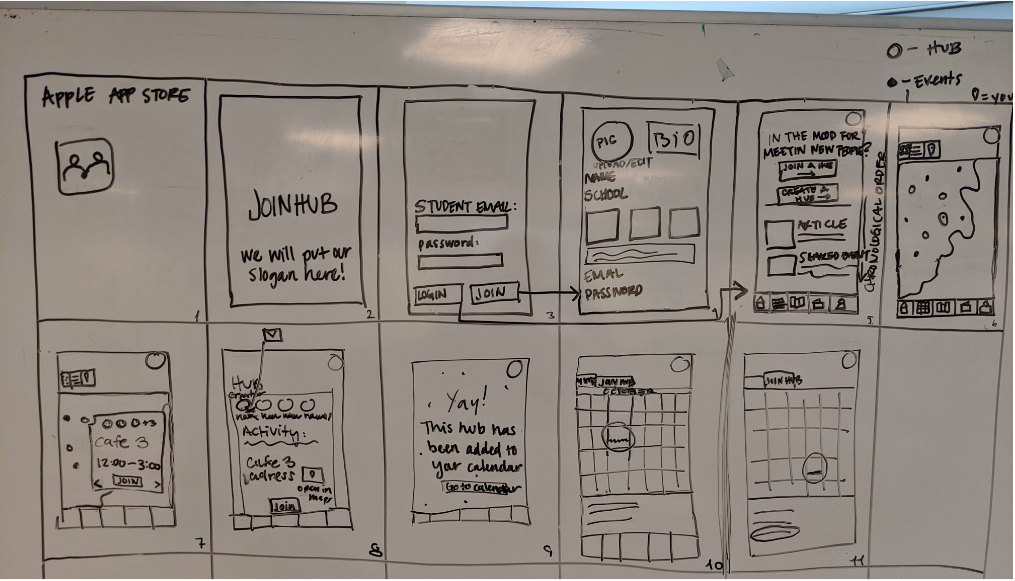 O - HUB
● - Events
= you
APPLE APP STORE
1
JOINHUB
we will put our
slogan here!
2
STUDENT EMAIL:
password:
LOGIN
JOIN
3
PIC
BIO
UPLOAD/EDIT
NAME
SCHOOL
EMAIL
PASSWORD
4
IN THE MOOD FOR
MEETIN NEW PEOPLE?
JOIN A
CREATE A
HUB →
ARTICLE
SHARED EVENT
CHRONOLOGICAL ORDER
5
6
+3
Cafe 3
12:00-3:00
< JOIN >
7
HUB
name
Activity:
Cafe 3
adress
open in
maps
Join
8
Yay!
This hub has
been added to
your calendar
Go to calendar
9
JOINHUB
OCTOBER
10
JOINHUB
11